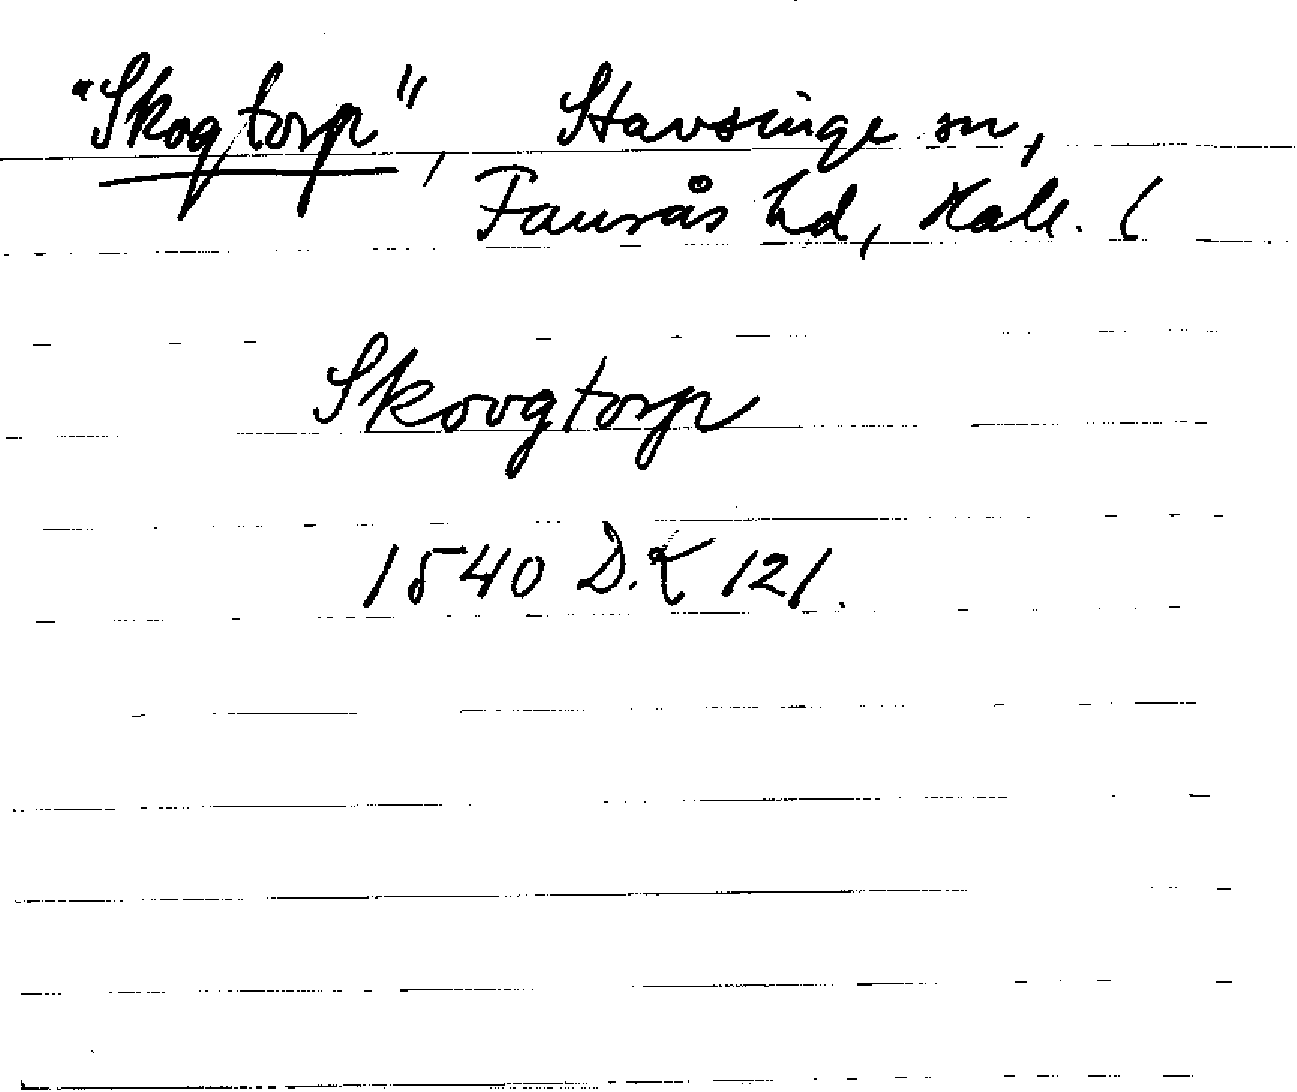 "Skogtorp", Stavsinge sn,
Faurås hd, Hall. (
Skovgtorp
1540 D.K 121.